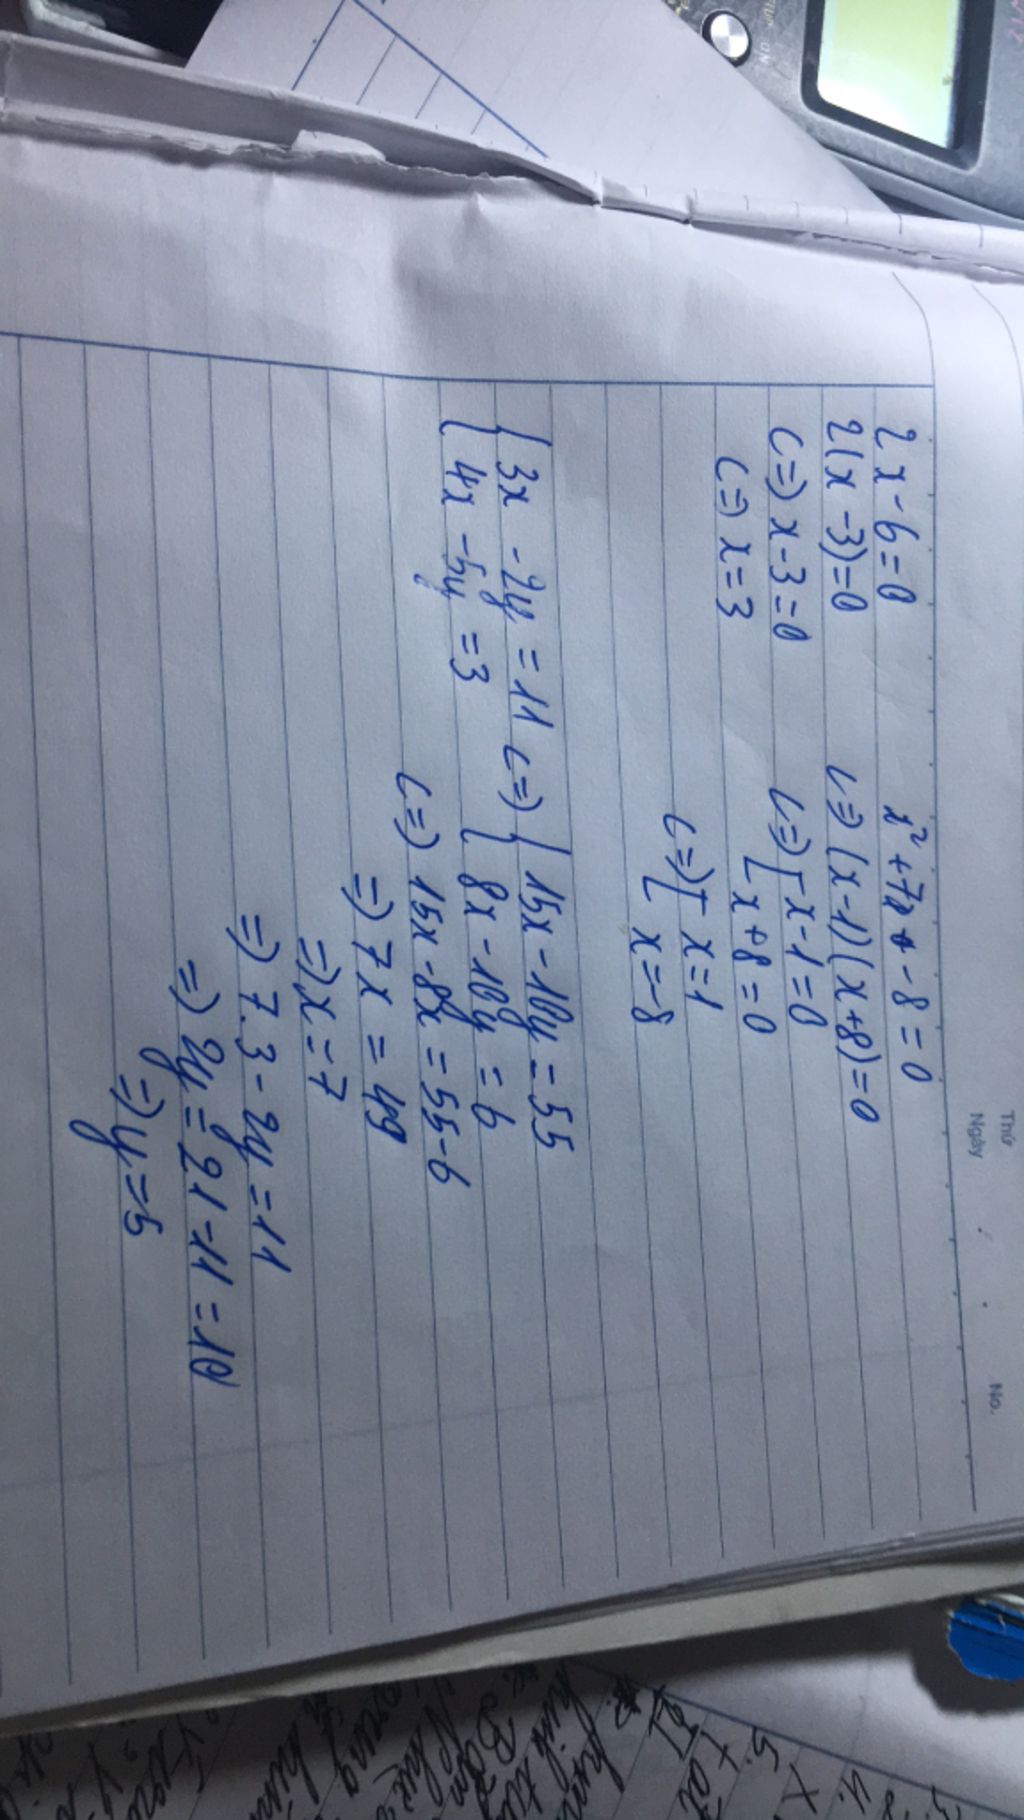 Thứ
Ngày
No.
2x-6=0
2(x-3)=0
<=> x-3=0
<=> x=3
x²+7x-8=0
<=> (x-1)(x+8)=0
<=> [ x-1=0
x+8=0
<=> [ x=1
x=-8
{ 3x -2y = 11 <=> { 15x-10y=55
4x -5y = 3 { 8x-10y=6
<=> 15x-8x=55-6
=> 7x=49
=> x=7
=> 7.3-2y=11
=> 2y=21-11=10
=> y=5